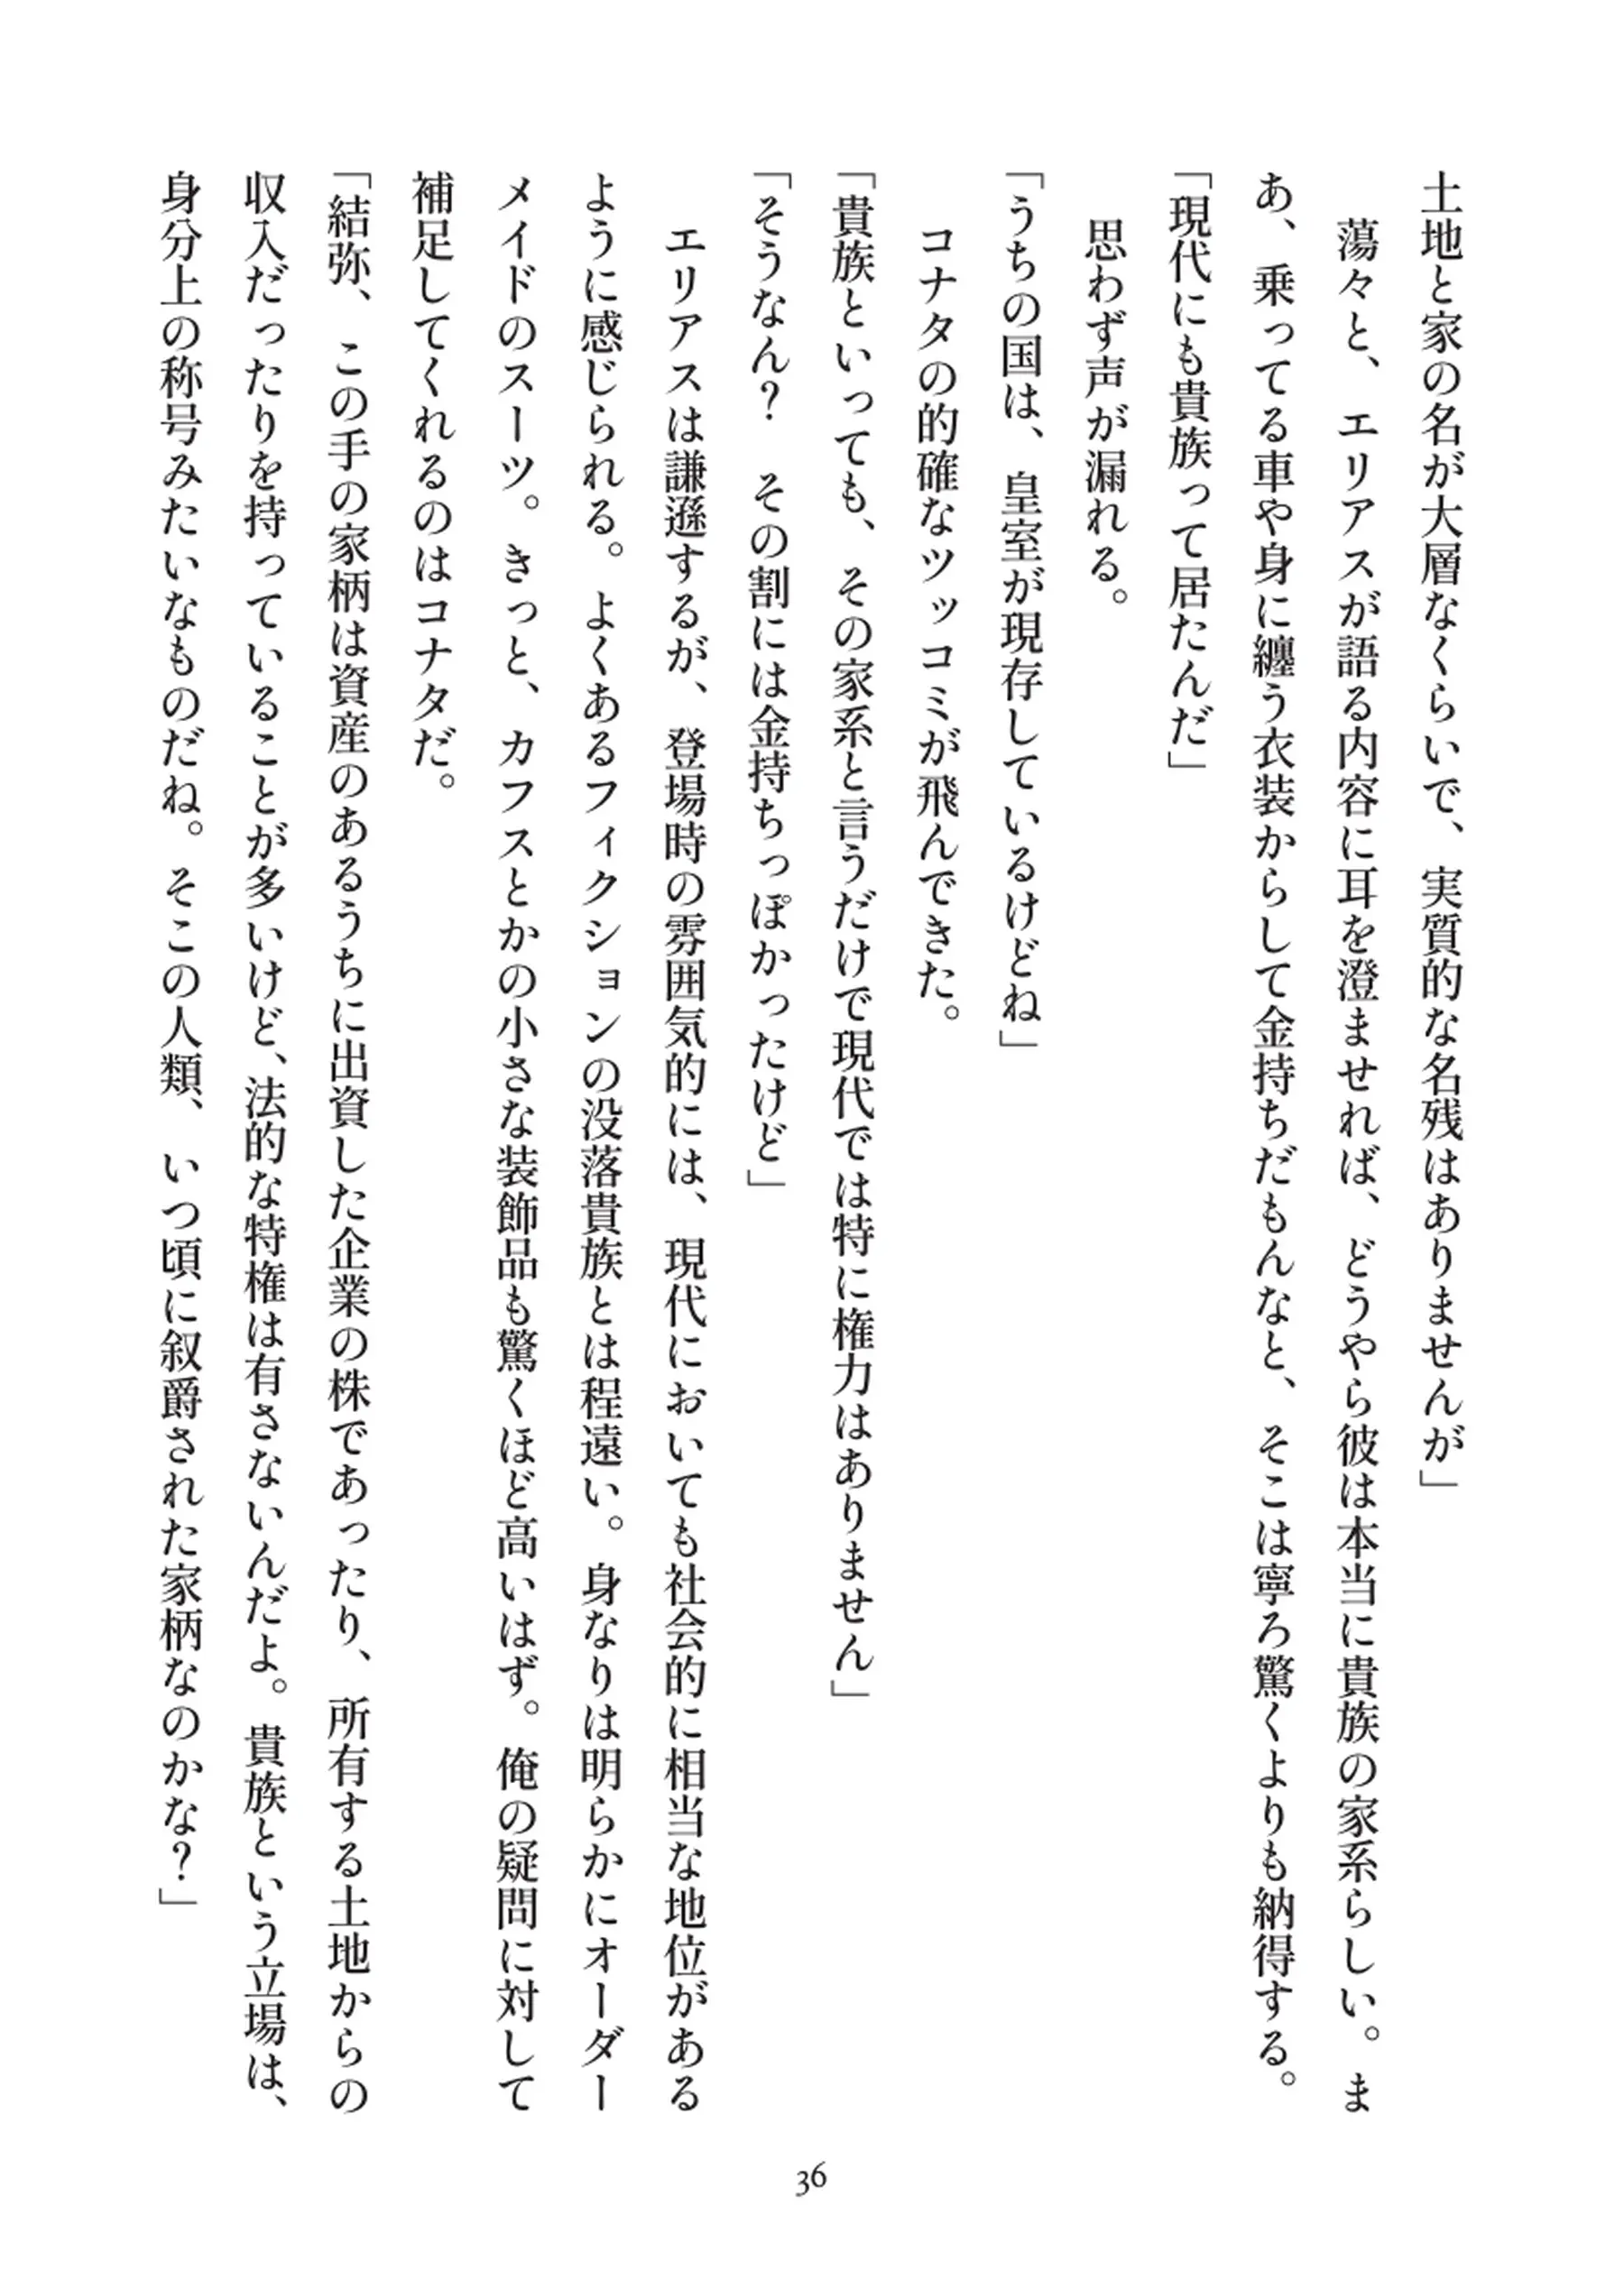 土地と家の名が大層なくらいで、実質的な名残はありませんが」
　蕩々と、エリアスが語る内容に耳を澄ませれば、どうやら彼は本当に貴族の家系らしい。ま
あ、乗ってる車や身に纏う衣装からして金持ちだもんなと、そこは寧ろ驚くよりも納得する。
「現代にも貴族って居たんだ」
　思わず声が漏れる。
「うちの国は、皇室が現存しているけどね」
　コナタの的確なツッコミが飛んできた。
「貴族といっても、その家系と言うだけで現代では特に権力はありません」
「そうなん？　その割には金持ちっぽかったけど」
　エリアスは謙遜するが、登場時の雰囲気的には、現代においても社会的に相当な地位がある
ように感じられる。よくあるフィクションの没落貴族とは程遠い。身なりは明らかにオーダー
メイドのスーツ。きっと、カフスとかの小さな装飾品も驚くほど高いはず。俺の疑問に対して
補足してくれるのはコナタだ。
「結弥、この手の家柄は資産のあるうちに出資した企業の株であったり、所有する土地からの
収入だったりを持っていることが多いけど、法的な特権は有さないんだよ。貴族という立場は、
身分上の称号みたいなものだね。そこの人類、いつ頃に叙爵された家柄なのかな？」
36